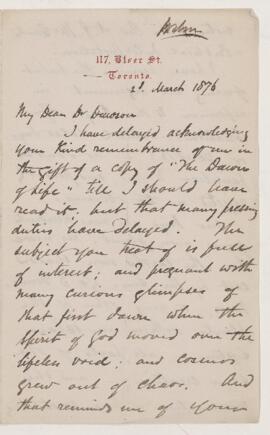 Wilson
117, Bloor St.
Toronto.
2d March 1876
My Dear Dr Dawson
I have delayed acknowledging
your kind remembrance of me in
the gift of a copy of "The Dawn
of Life" till I should have
read it, but that many pressing
duties have delayed. The
subject you treat of is full
of interest; and pregnant with
many curious glimpses of
that first dawn when the
Spirit of God moved over the
lifeless void; and cosmos
grew out of chaos. And
that reminds me of your